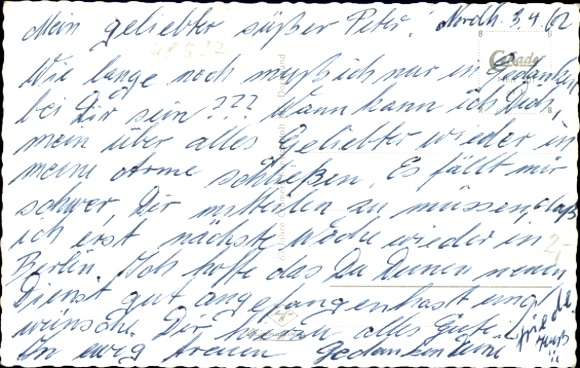 Mein geliebter süßer Peter! Nordh. 3.4.62
Wie lange noch muß ich nur in Gedanken
bei Dir sein??? Wann kann ich Dich,
mein über alles Geliebter wieder in
meine Arme schließen. Es fällt mir
schwer, Dir mitteilen zu müssen, daß
ich erst nächste Woche wieder in
Berlin. Ich hoffe das Du Deinen neuen
Dienst gut angefangen hast und
wünsche Dir hierzu alles Gute.
In ewig treuen Gedanken Deine
2,-